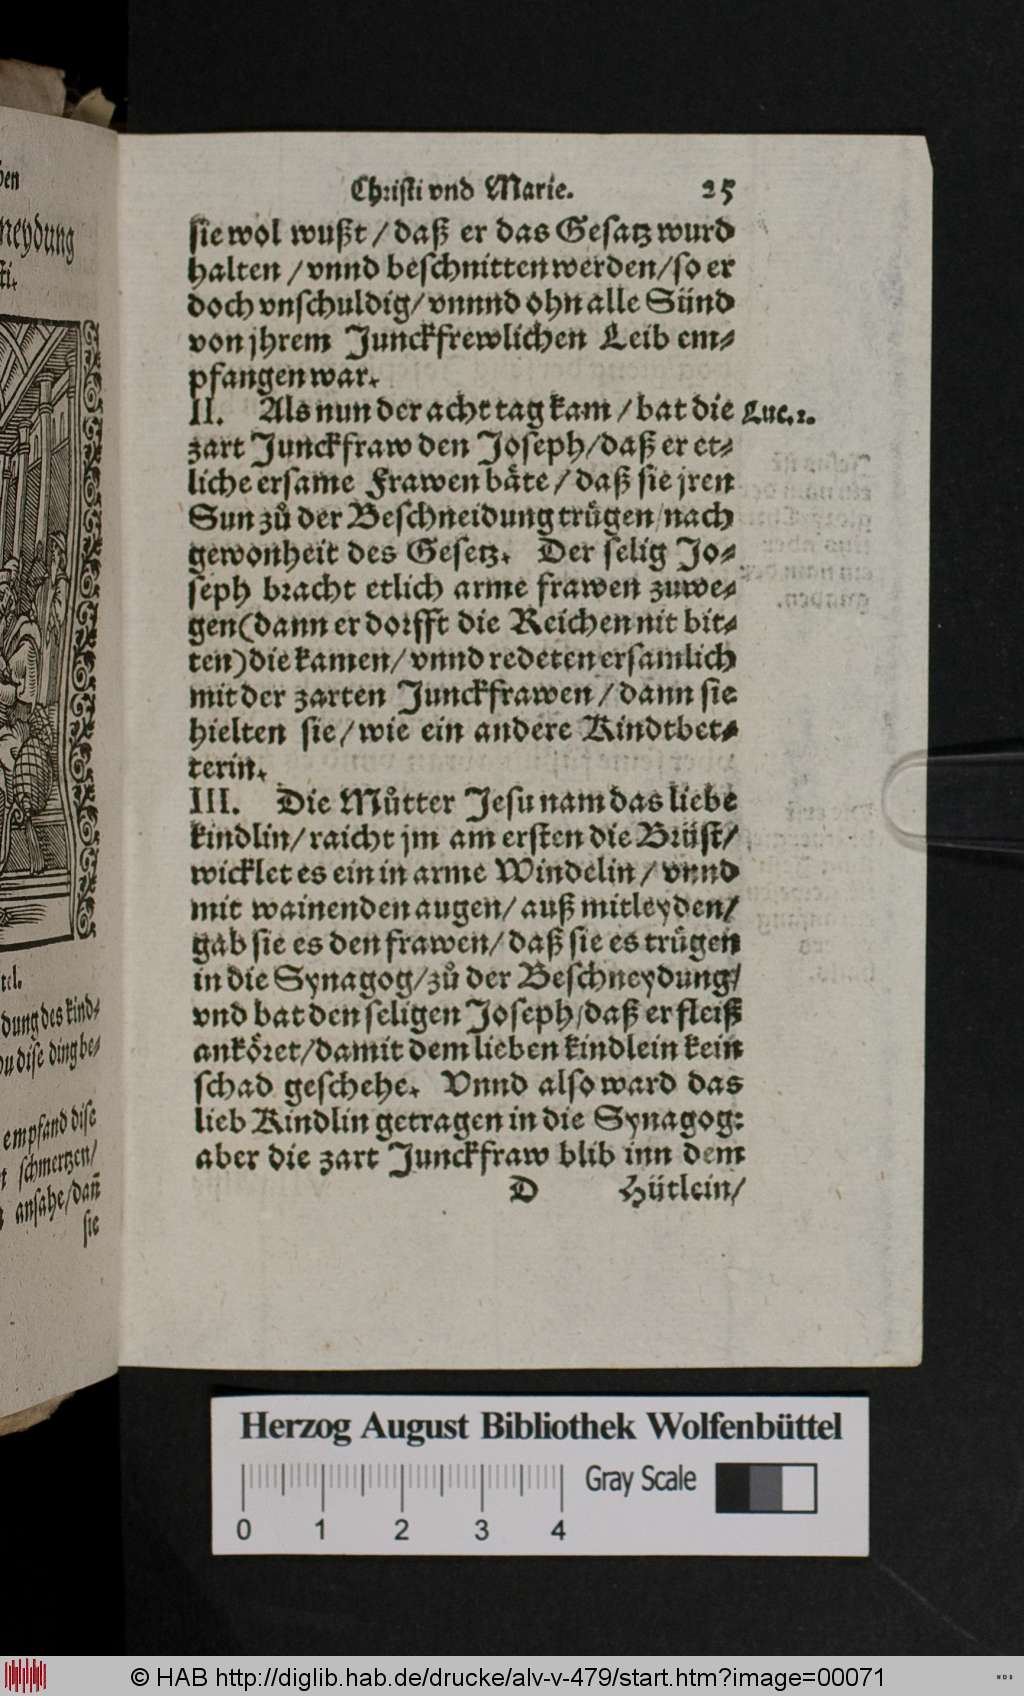 neydung
tel.
dung des kind⸗
du dise ding be⸗
empfand dise
schmertzen/
ansahe/dañ
sie
Christi vnd Marie. 25
sie wol wußt/daß er das Gesatz wurd
halten/vnnd beschnitten werden/so er
doch vnschuldig/vnnnd ohn alle Sünd
von jhrem Junckfrewlichen Leib em⸗
pfangen war.
II. Als nun der acht tag kam/bat die Luc. 2.
zart Junckfraw den Joseph/daß er et⸗
liche ersame Frawen bäte/daß sie jren
Sun zů der Beschneidung trügen/nach
gewonheit des Gesetz. Der selig Jo⸗
seph bracht etlich arme frawen zuwe⸗
gen(dann er dorfft die Reichen nit bit⸗
ten)die kamen/vnnd redeten ersamlich
mit der zarten Junckfrawen/dann sie
hielten sie/wie ein andere Kindtbet⸗
terin.
III. Die Můtter Jesu nam das liebe
kindlin/raicht jm am ersten die Brüst/
wicklet es ein in arme Windelin/vnnd
mit wainenden augen/auß mitleyden/
gab sie es den frawen/daß sie es trügen
in die Synagog/zů der Beschneydung/
vnd bat den seligen Joseph/daß er fleiß
anköret/damit dem lieben kindlein kein
schad geschehe. Vnnd also ward das
lieb Kindlin getragen in die Synagog:
aber die zart Junckfraw blib inn dem
D Hütlein/
Herzog August Bibliothek Wolfenbüttel
Gray Scale
0 1 2 3 4
© HAB http://diglib.hab.de/drucke/alv-v-479/start.htm?image=00071